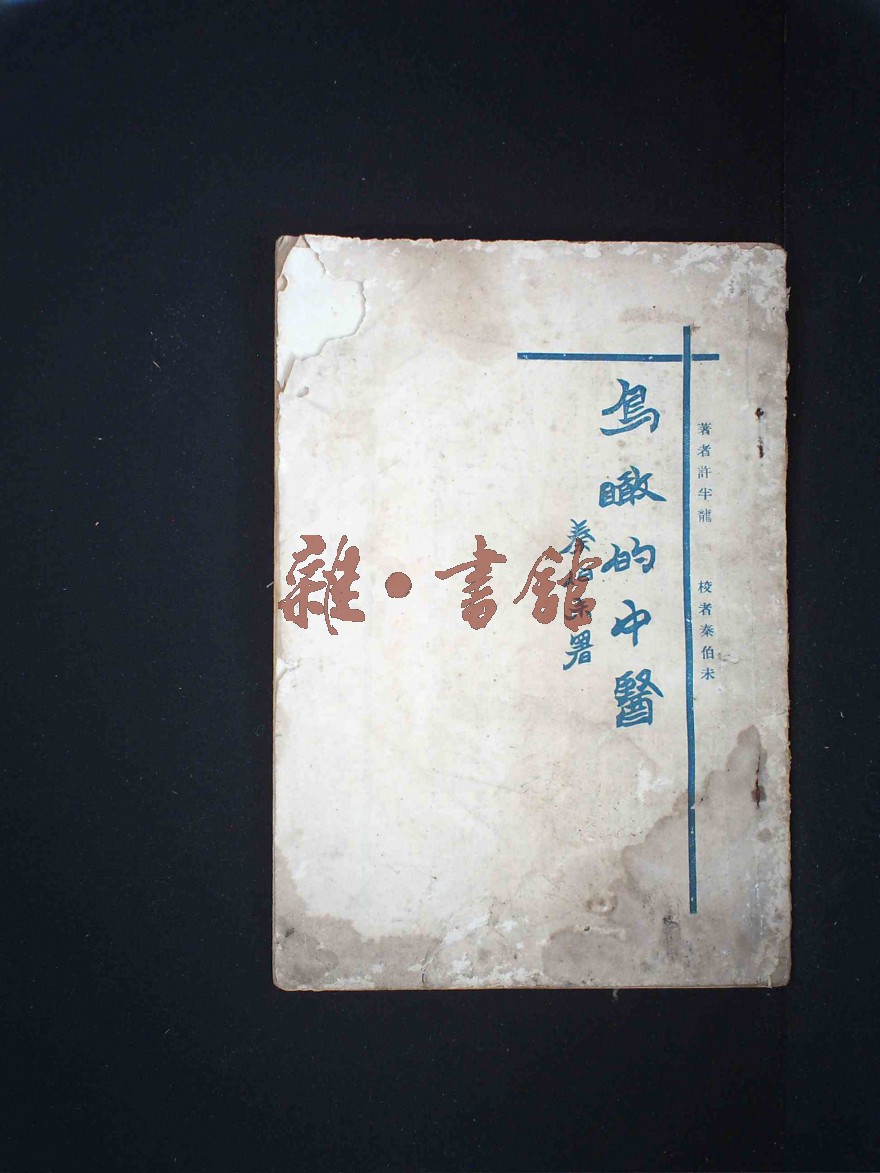 著者許半龍　校者秦伯未
鳥瞰的中醫
秦伯未署
雜·書館